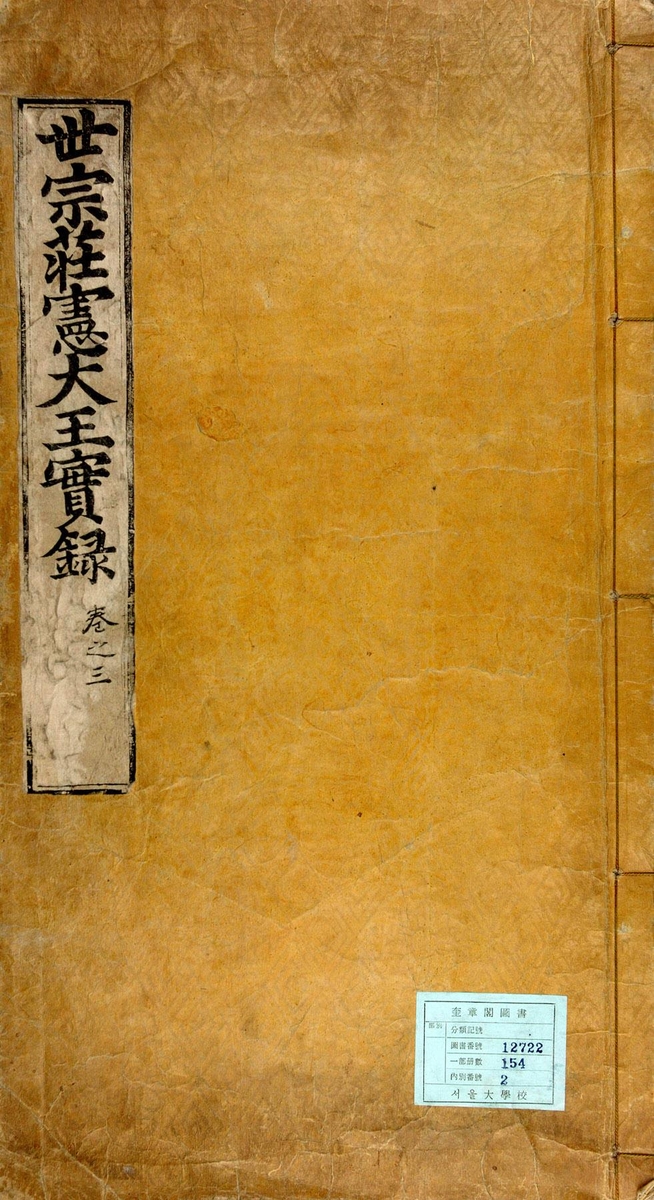 世宗莊憲大王實錄
卷之三
奎章閣圖書
分類記號
圖書番號 12722
一部冊數 154
內別番號 2
서울大學校